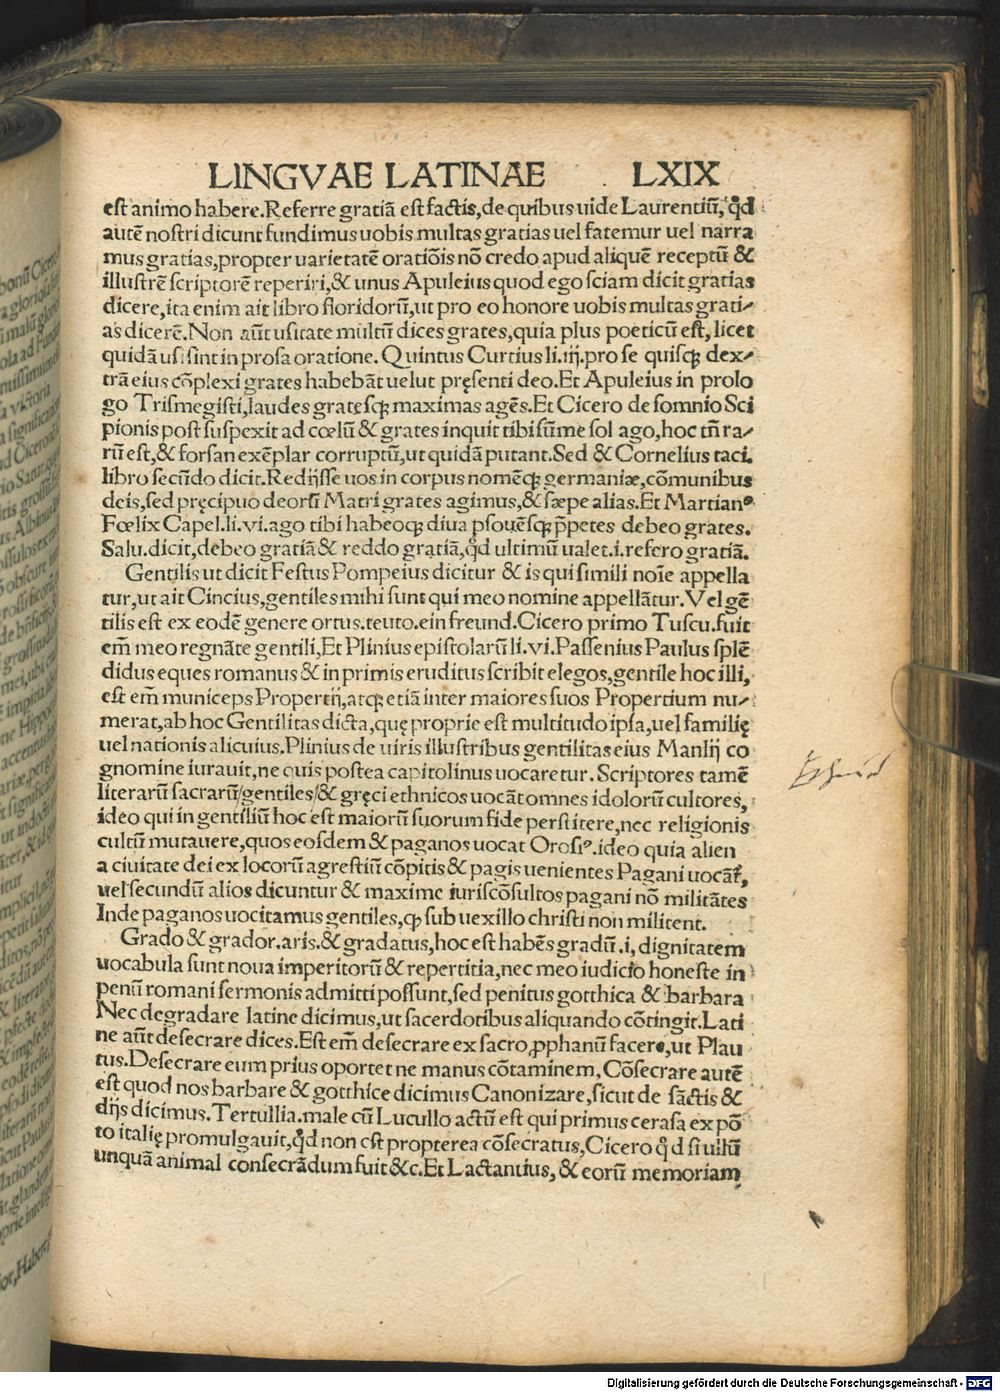 LINGVAE LATINAE LXIX
est animo habere.Referre gratiã est factis,de quibus uide Laurentiũ, qđ
autẽ nostri dicunt fundimus uobis multas gratias uel fatemur uel narra
mus gratias,propter uarietatẽ oratiõis nõ credo apud aliquẽ receptũ &
illustrẽ scriptorẽ reperiri,& unus Apuleius quod ego sciam dicit gratias
dicere,ita enim ait libro floridorũ,ut pro eo honore uobis multas grati-
as dicerẽ.Non aũt usitate multũ dices grates,quia plus poeticũ est, licet
quidã usi sint in prosa oratione. Quintus Curtius li.iij.pro se quisqꝫ dex-
trã eius cõplexi grates habebãt uelut pręsenti deo.Et Apuleius in prolo
go Trismegisti,laudes gratesqꝫ maximas agẽs.Et Cicero de somnio Sci
pionis post suspexit ad cœlũ & grates inquit tibi sũme sol ago,hoc tñ ra-
rũ est,& forsan exẽplar corruptũ,ut quidã putant.Sed & Cornelius taci.
libro secũdo dicit.Redijsse uos in corpus nomẽqꝫ germaniæ,cõmunibus
deis,sed pręcipuo deorũ Marti grates agimus,& sæpe alias.Et Martianꝰ
Fœlix Capel.li.vi.ago tibi habeoqꝫ diua ꝓsouẽsqꝫ p̃petes debeo grates.
Salu.dicit,debeo gratiã & reddo gratiã,qđ ultimũ ualet.i.refero gratiã.
Gentilis ut dicit Festus Pompeius dicitur & is qui simili noĩe appella
tur,ut ait Cincius,gentiles mihi sunt qui meo nomine appellãtur.Vel gẽ
tilis est ex eodẽ genere ortus.teuto.ein freund.Cicero primo Tuscu.fuit
em̃ meo regnãte gentili,Et Plinius epistolarũ li.vi.Passenius Paulus splẽ
didus eques romanus & in primis eruditus scribit elegos,gentile hoc illi,
est em̃ municeps Propertij,atqꝫ etiã inter maiores suos Propertium nu-
merat,ab hoc Gentilitas dicta,quę proprie est multitudo ipsa,uel familię
uel nationis alicuius.Plinius de uiris illustribus gentilitas eius Manlij co
gnomine iurauit,ne quis postea capitolinus uocaretur.Scriptores tamẽ
literarũ sacrarũ/gentiles/& gręci ethnicos uocãt omnes idolorũ cultores,
ideo qui in gentiliũ hoc est maiorũ suorum fide perstitere,nec religionis
cultũ mutauere,quos eosdem & paganos uocat Orosiꝰ.ideo quia alien
a ciuitate dei ex locorũ agrestiũ cõpitis & pagis uenientes Pagani uocãt̃,
uel secundũ alios dicuntur & maxime iuriscõsultos pagani nõ militãtes
Inde paganos uocitamus gentiles,ꝙ sub uexillo christi non militent.
Grado & grador.aris.& gradatus,hoc est habẽs gradũ.i,dignitatem
uocabula sunt noua imperitorũ & repertitia,nec meo iudicio honeste in
penũ romani sermonis admitti possunt,sed penitus gotthica & barbara
Nec degradare latine dicimus,ut sacerdotibus aliquando cõtingit.Lati
ne aũt desecrare dices.Est em̃ desecrare ex sacro,ꝓphanũ facere,ut Plau
tus.Desecrare eum prius oportet ne manus cõtaminem,Cõsecrare autẽ
est quod nos barbare & gotthice dicimus Canonizare,sicut de sãctis &
dijs dicimus.Tertullia.male cũ Lucullo actũ est qui primus cerasa ex põ
to italię promulgauit,qđ non est propterea cõsecratus,Cicero qđ si ullũ
unquã animal consecrãdum fuit &c.Et Lactantius, & eorũ memoriam
Digitalisierung gefördert durch die Deutsche Forschungsgemeinschaft - DFG